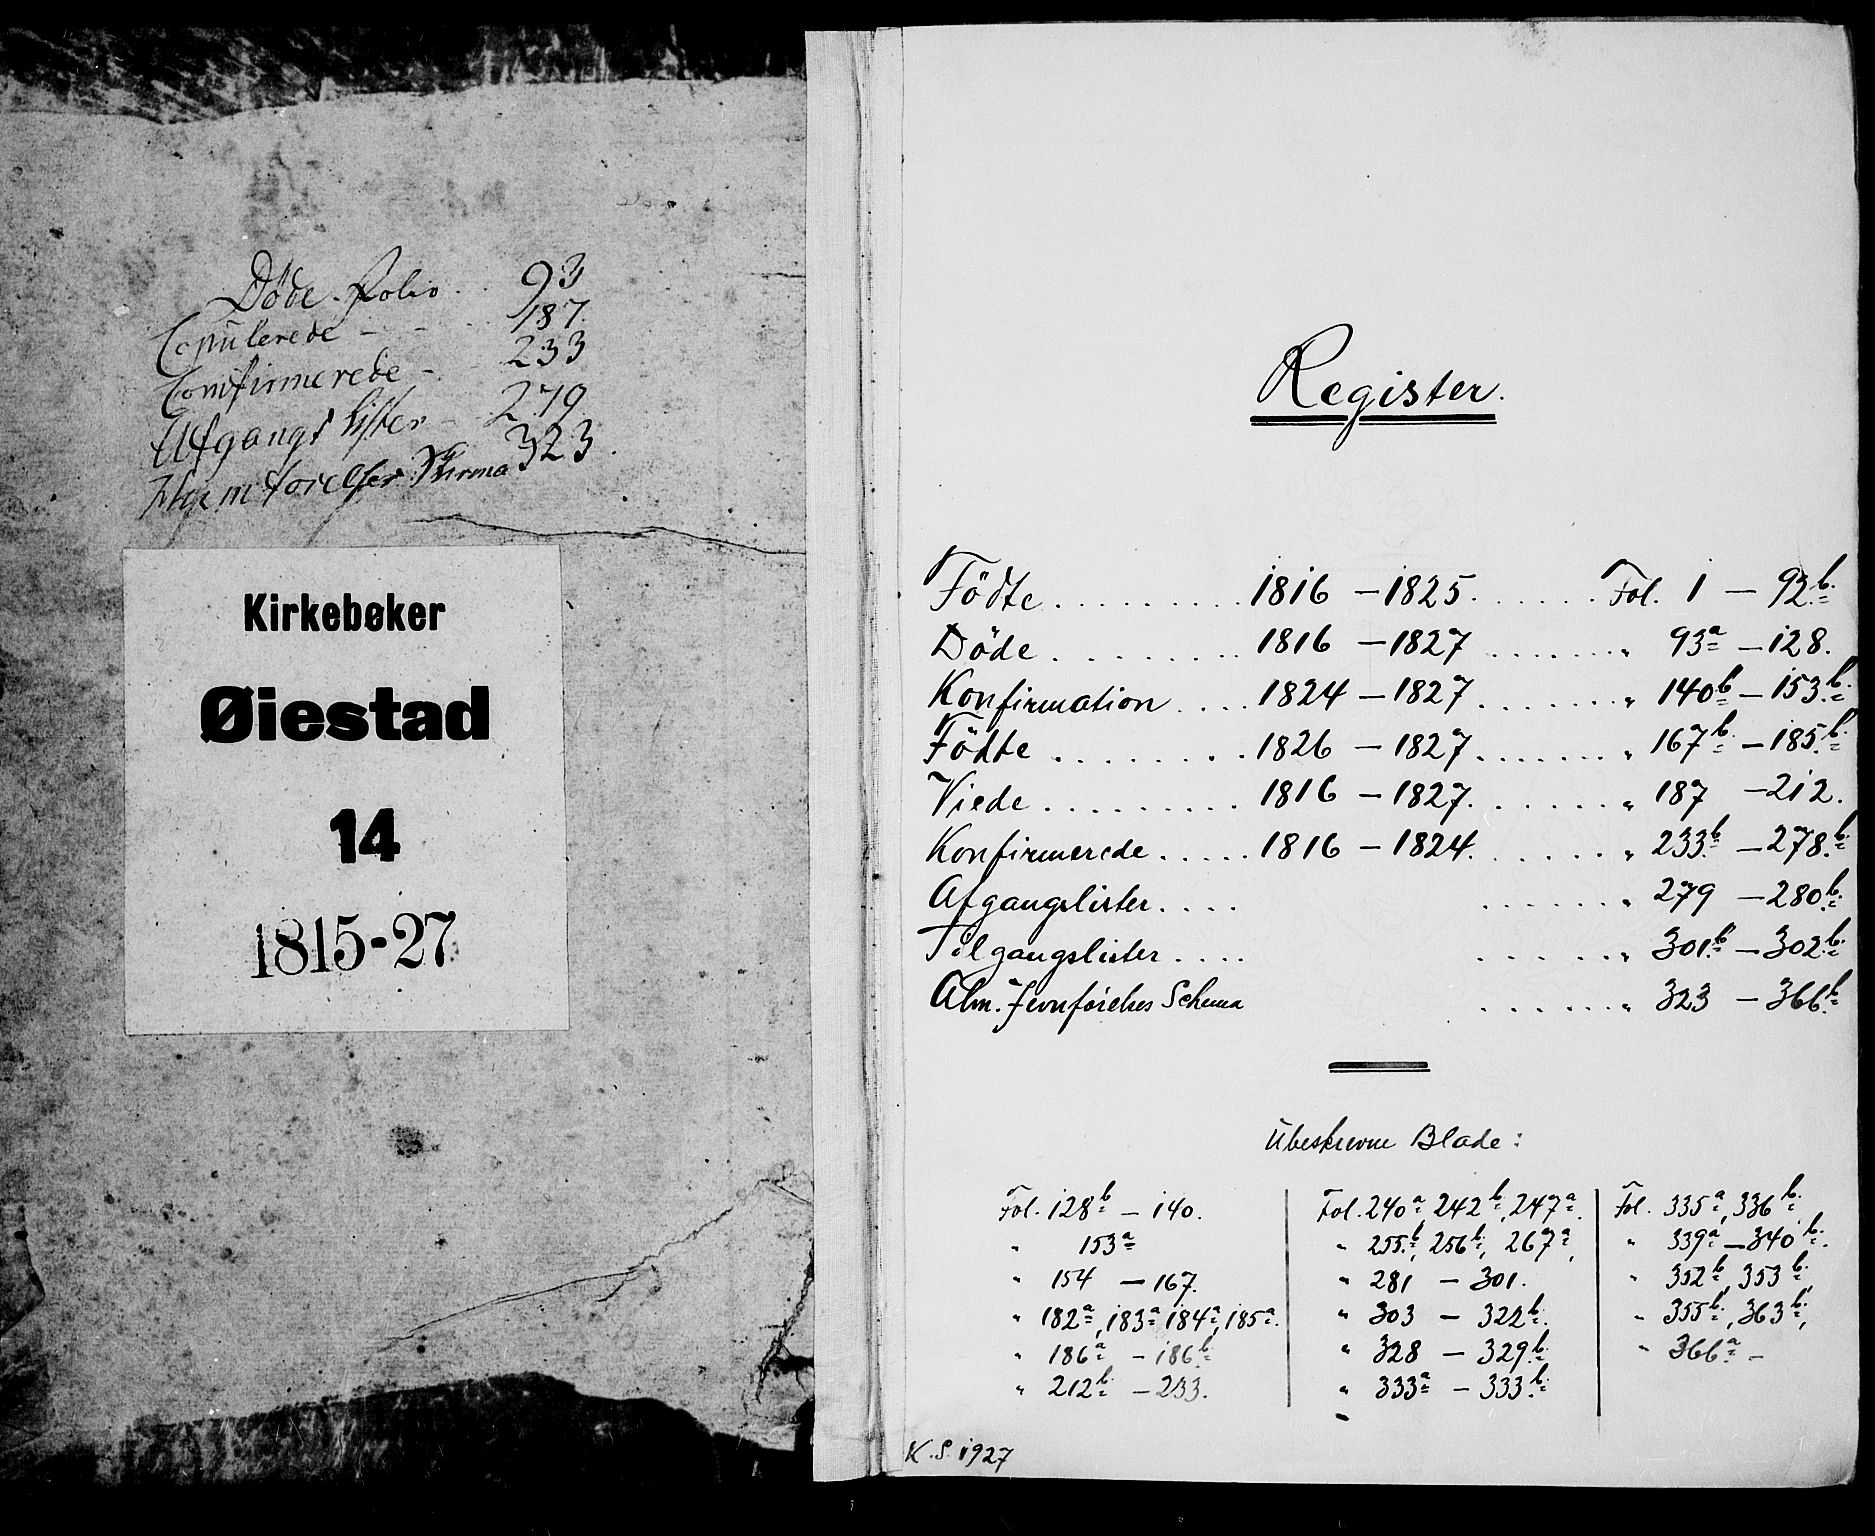 Döde Folio . . 93
Copulerede - - . . 187.
Confirmerede - . . 233
Afgangs Lister - 279
Schema 323.
Kirkebøker
Øiestad
14
1815-27
Register.
Födte . . . . . . . . . . 1816 - 1825 . . . . . . Fol. 1 - 92b.
Döde . . . . . . . . . 1816 - 1827 . . . . . . . „ 93a - 128.
Konfirmation . . . . 1824 - 1827 . . . . . . . „ 140b - 153b.
Födte . . . . . . . . . 1826 - 1827 . . . . . . . „ 167b - 185b.
Viede . . . . . . . . . . 1816 - 1827 . . . . . . . „ 187 - 212.
Konfirmerede . . . . . 1816 - 1824 . . . . . . . „ 233b. - 278b.
Afgangslister . . . . . . . . . . . „ 279 - 280b.
Tilgangslister . . . . . . . . . . . „ 301b. - 302b.
Alm. Jevnførelses Schema . . . . . . . „ 323 - 366b.
Ubeskrevne Blade:
Fol. 128b - 140.
„ 153a
„ 154 - 167.
„ 182a, 183a 184a, 185a.
„ 186a - 186b
„ 212b - 233.
Fol. 240a 242b, 247a.
„ 255b, 256b, 267a,
„ 281 - 301.
„ 303 - 322b.
„ 328 - 329b.
„ 333a - 333b.
„
Fol. 335a, 336b.
„ 339a - 340b.
„ 352b, 353b,
„ 355b, 363b,
„ 366a -
K. S. 1927